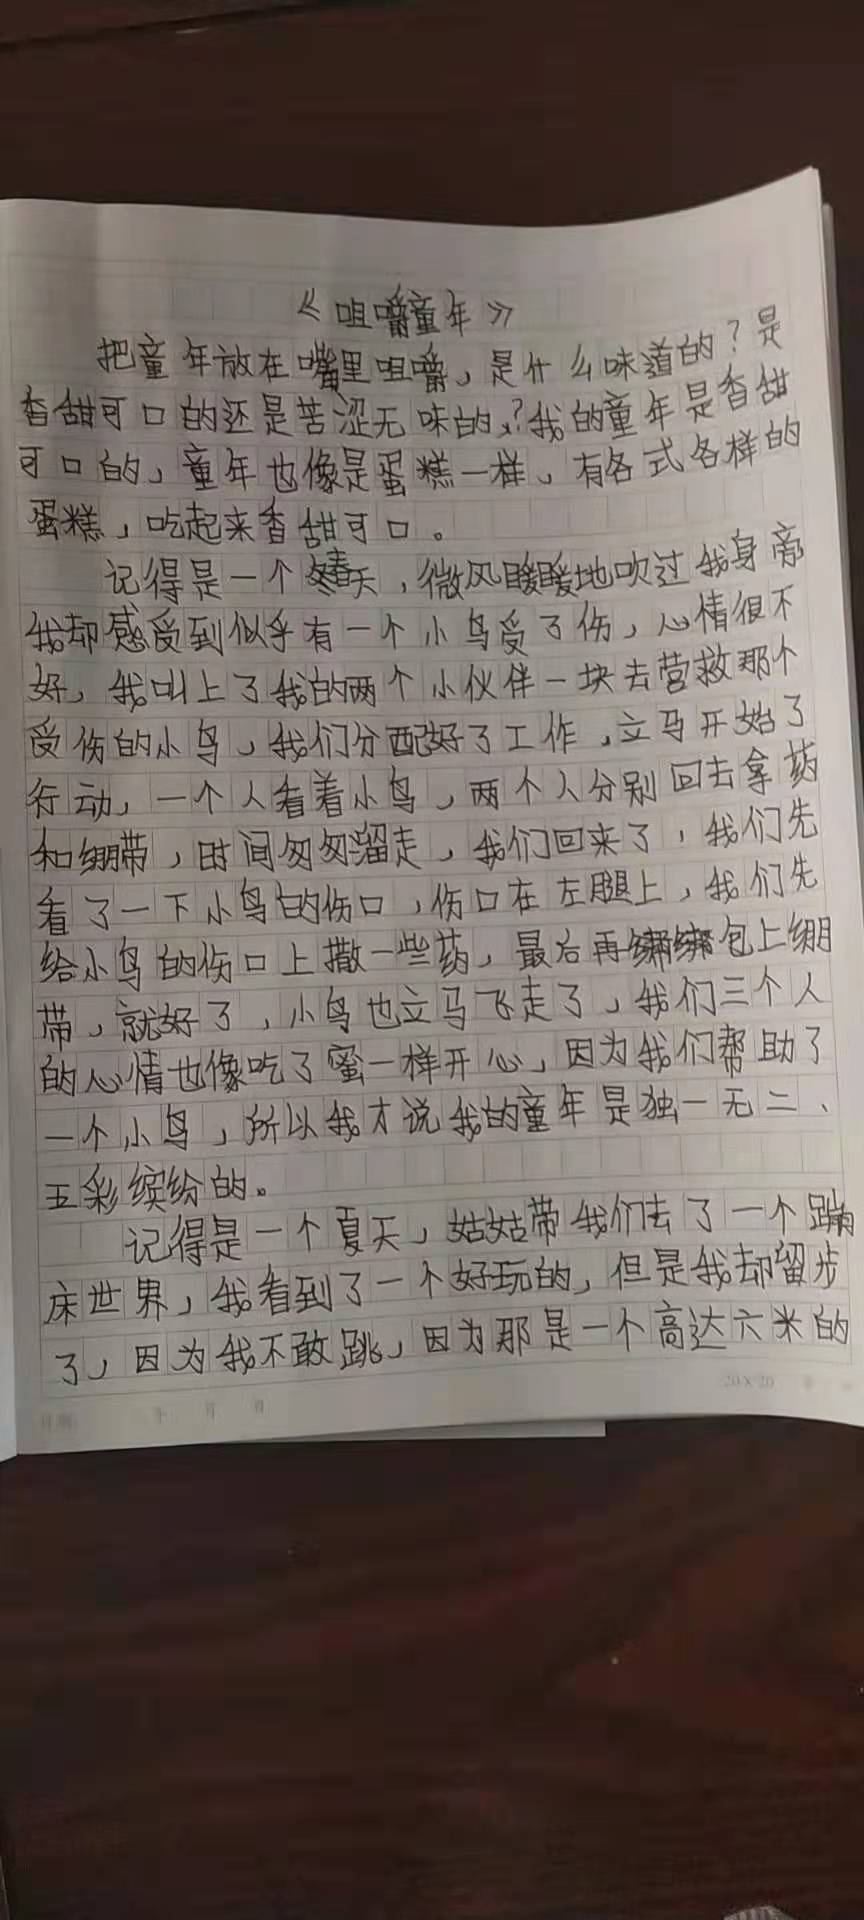 《咀嚼童年》
把童年放在嘴里咀嚼，是什么味道的？是
香甜可口的还是苦涩无味的？我的童年是香甜
可口的，童年也像是蛋糕一样，有各式各样的
蛋糕，吃起来香甜可口。
记得是一个春天，微风暖暖地吹过我身旁
我却感受到似乎有一个小鸟受了伤，心情很不
好，我叫上了我的两个小伙伴一块去营救那个
受伤的小鸟，我们分配好了工作，立马开始了
行动，一个人看着小鸟，两个人分别回去拿药
和绷带，时间匆匆溜走，我们回来了，我们先
看了一下小鸟的伤口，伤口在左腿上，我们先
给小鸟的伤口上撒一些药，最后再包上绷
带，就好了，小鸟也立马飞走了，我们三个人
的心情也像吃了蜜一样开心，因为我们帮助了
一个小鸟，所以我才说我的童年是独一无二、
五彩缤纷的。
记得是一个夏天，姑姑带我们去了一个蹦
床世界，我看到了一个好玩的，但是我却留步
了，因为我不敢跳，因为那是一个高达六米的
20×20
年 月 日